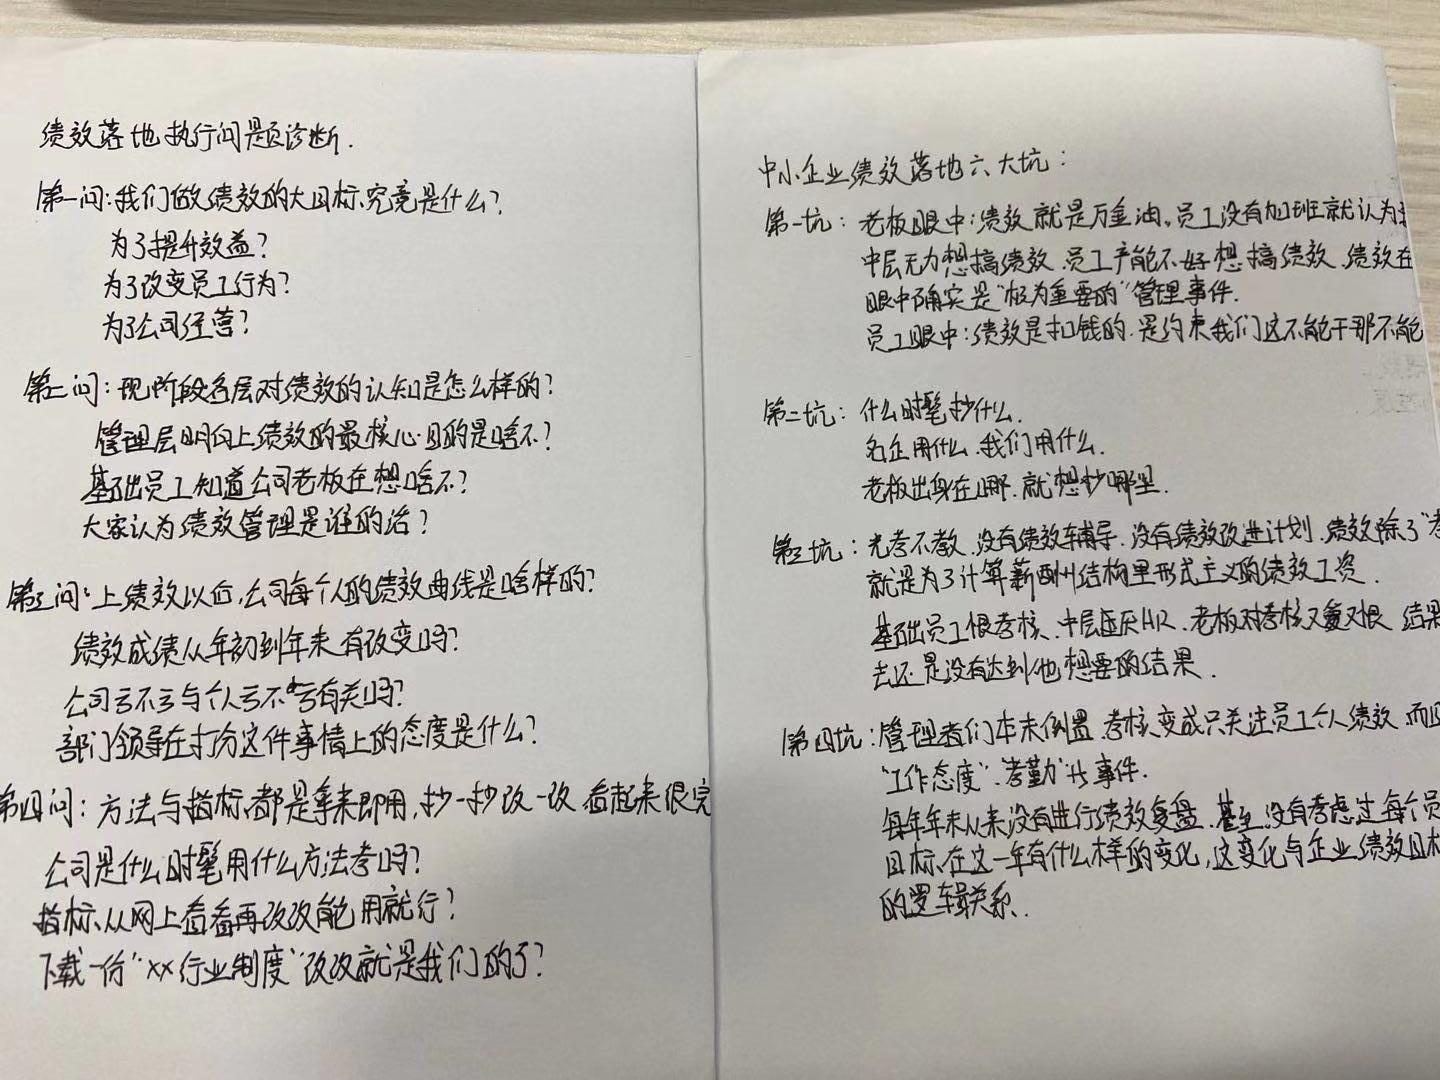 绩效落地执行问题诊断.
第一问:我们做绩效的大目标究竟是什么?
为了提升效益?
为了改变员工行为?
为了公司经营?
第二问:现阶段各层对绩效的认知是怎么样的?
管理层明白上绩效的最核心目的是啥不?
基础员工知道公司老板在想啥不?
大家认为绩效管理是谁的活?
第三问:上绩效以后,公司每个人的绩效曲线是啥样的?
绩效成绩从年初到年末有改变吗?
公司亏不亏与个人亏不亏有关吗?
部门领导在打分这件事情上的态度是什么?
第四问:方法与指标都是拿来即用,抄一抄改一改 看起来很完
公司是什么时髦用什么方法考吗?
指标从网上看看再改改能用就行?
下载一份"xx行业制度"改改就是我们的了?
中小企业绩效落地六大坑:
第一坑:老板眼中:绩效就是万金油,员工没有加班就认为
中层无力想搞绩效.员工产能不好想搞绩效.绩效在
眼中确实是"极为重要的"管理事件.
员工眼中:绩效是扣钱的.是约束我们这不能干那不能
第二坑:什么时髦抄什么.
名企用什么.我们用什么.
老板出身在哪.就想抄哪里.
第三坑:光考不教.没有绩效辅导.没有绩效改进计划.绩效除了"考
就是为了计算薪酬结构里形式主义的绩效工资.
基础员工恨考核、中层逐厌HR、老板对考核又爱又恨 结果
去还是没有达到他想要的结果.
第四坑:管理者们本末倒置.考核变成只关注员工个人绩效 而
"工作态度"."考勤"此事件.
每年年末从来没有进行绩效复盘.甚至没有考虑过每个员
目标在这一年有什么样的变化,这变化与企业绩效目标
的逻辑关系.